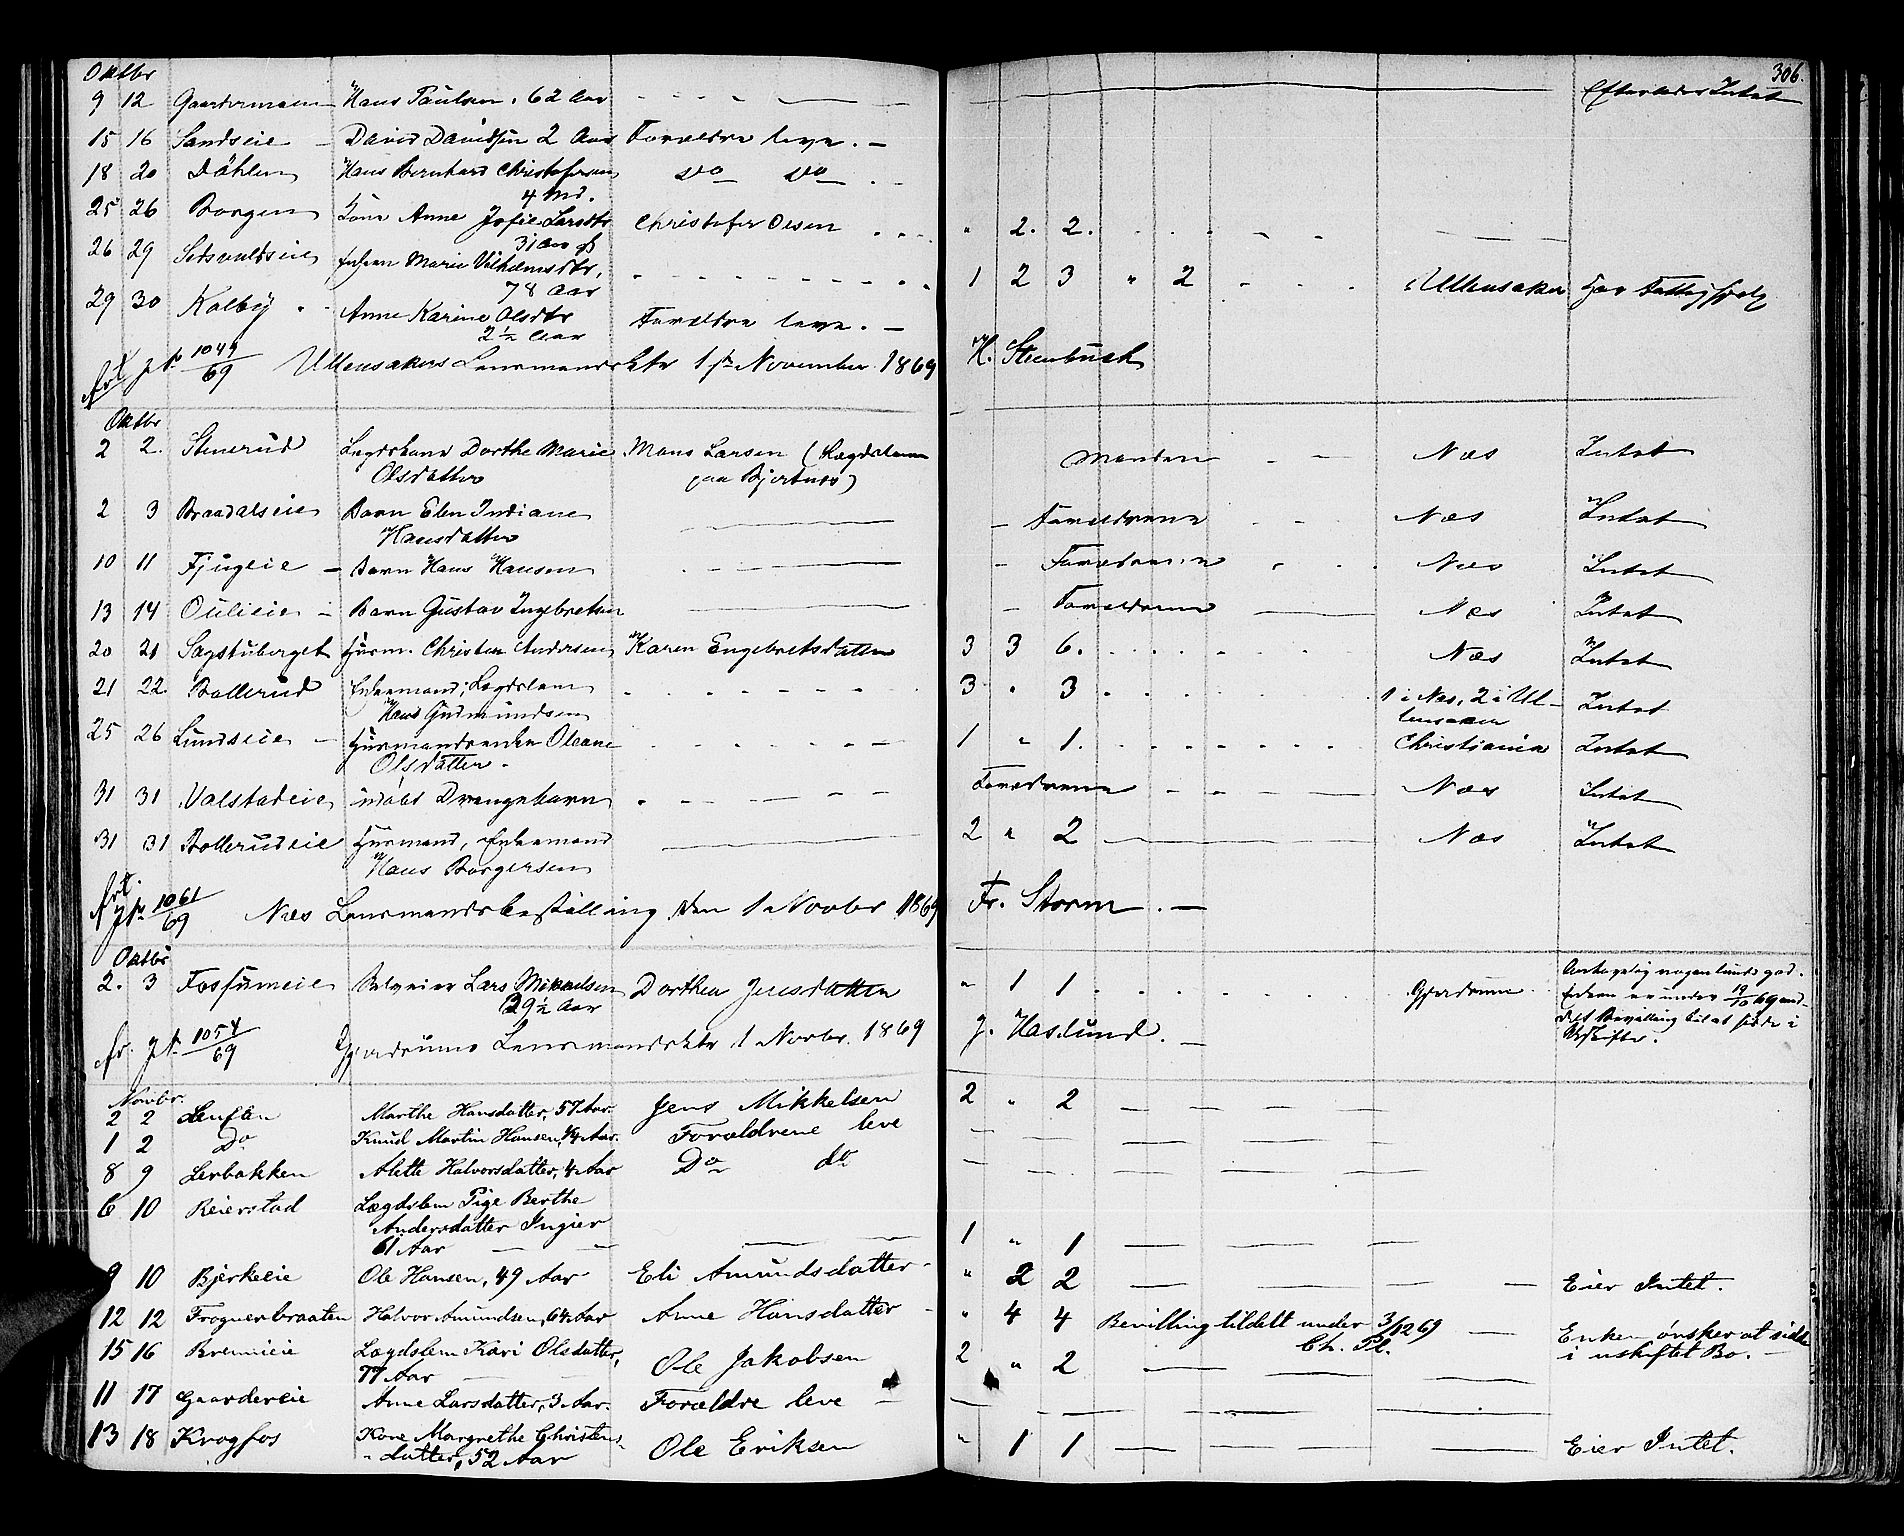 306.
Oktbr
9 12 Gaardermoen Hans Paulsen, 62 Aar Efterlader Intet
15 16 Sandseie David Davidsen 2 Aar Forældre leve.
18 20 Dåhlen Hans Bernhard Christofersen Do Do
4 Md.
25 26 Borgen Kone Anne Josefie Larsdtr Christofer Olsen " 2. 2.
31 Aar
26 29 Enken Marie Vilhelmsdtr, 1 2 3 " 2 Ullensaker
78 Aar
29 30 Kalby Anne Karine Olsdtr Forældre leve.
2 1/2 Aar
1049/69 Ullensakers Lensmandsktr 1ste November 1869 H. Steenbuch
Oktbr
2 2. Stenerud Lægdskone Dorthe Marie Mons Larsen (Lægdslem Manden Næs Intet
Olsdatter paa Bjertnæs)
2 3 Braadalseie Barn Elen Indiane Forældrene Næs Intet
Hansdatter
10 11 Fjugeie Barn Hans Hansen Forældrene Næs Intet
13 14 Oulieie Barn Gustav Ingebretsen Forældrene Næs Intet
20 21 Sagstuberget Husm. Christen Andersen Karen Engebretsdatter 3 3 6. Næs Intet
21 22. Bollerud Enkemand, Lægdslem 3 " 3 1 i Næs, 2 i Ul-
Hans Gudmundsen lensaker Intet
25 26 Lundseie Husmandsenke Oleane 1 " 1. Christiania Intet
Olsdatter.
31 31 Valstadeie udøbt Drengebarn Forældrene Næs Intet
31 31 Bollerudeie Husmand, Enkemand 2 " 2 Næs Intet
Hans Borgersen
1061/69 Næs Lensmandsbestilling den 1 Novbr 1869 Fr. Storm.
Oktbr
2. 3 Fosfumeie Lars Mikkelsen Dorthea Jensdatter " 1 1 Gjerdrum
39 1/2 Aar Enken er under 19/10 69 med-
delt Bevilling til at sidde i
Uskifte.
1054/69 Gjerdrums Lensmandsktr 1 Novbr. 1869 J. Haslund.
Novbr.
2 2 Lenften Marthe Hansdatter, 57 Aar. Jens Mikkelsen 2 " 2
1 2 Do Knud Martin Hansen, 14 Aar. Forældrene leve
8 9 Lerbakken Alette Halvorsdatter, 4 Aar Do do
6 10 Reierstad Lægdslem Pige Berthe
Andersdatter Ingier
61 Aar 1 " 1
9 10 Bjerkeeie Ole Hansen, 49 Aar Eli Amundsdatter " 2 2 Eier Intet.
12 12 Frognerbraaten Halvor Amundsen, 64 Aar Anne Hansdatter " 4 4 Bevilling tildelt under 3/12 69 Enken ønsker at sidde
Ch. Pl. i uskiftet Bo.
15 16 Brennieie Lægdslem Kari Olsdatter, Ole Jakobsen 2 " 2
77 Aar
11 17 Gaardereie Anne Larsdatter, 3 Aar. Forældre leve
13 18 Krogfos Kone Margrethe Christens- Ole Eriksen " 1 1 Eier Intet.
datter, 52 Aar